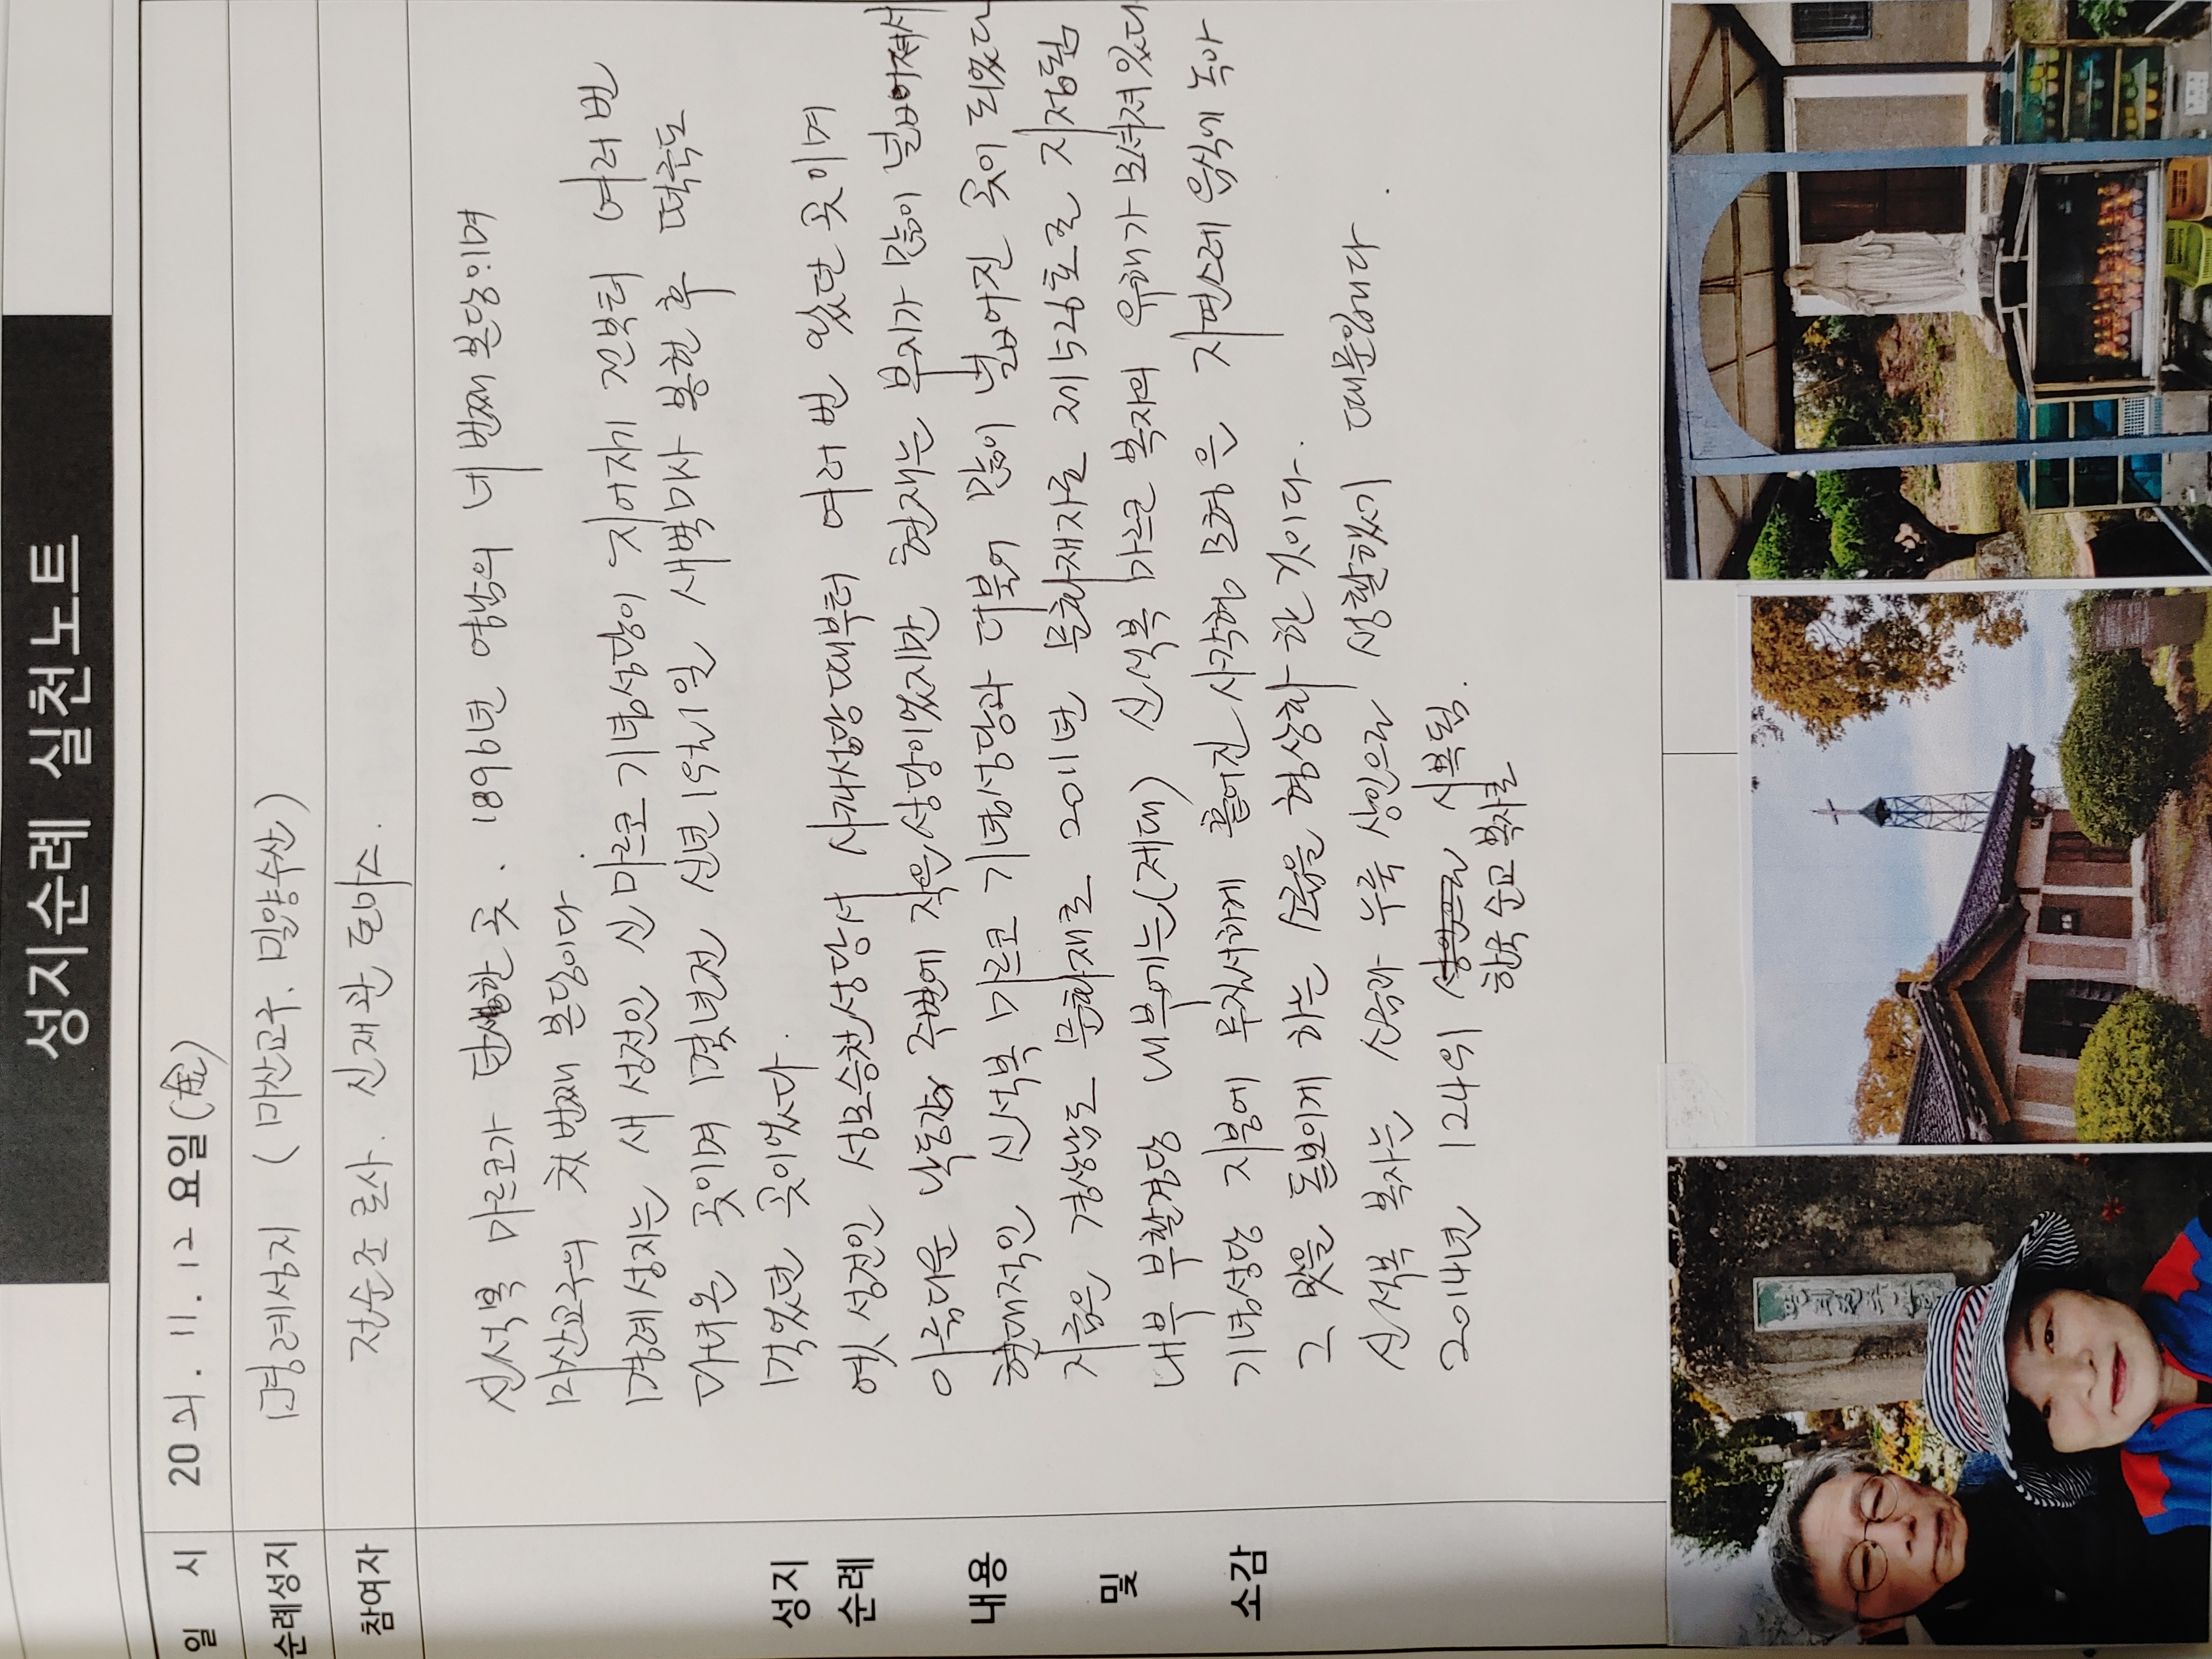 성지순례 실천노트
일 시 2021. 11. 12 요일(金)
순례성지 명례성지 (마산교구. 밀양수산)
참여자 전순조 로사. 신재관 토마스.
성지
순례
내용
및
소감
신석복 마르코가 탄생한 곳. 1896년 영남의 네 번째 본당이며
마산교구의 첫 번째 본당이다.
명례성지는 새 성전인 신 마르코 기념성당이 지어자기 전부터 여러 번
다녀온 곳이며 몇년전 신년 1월 1일 새벽미사 봉헌 후 떡국도
먹었던 곳이었다.
옛 성전인 성모승천성당서 여러 번 왔던 곳이며
아름다운 낙동강 주변에 작은 성당이었지만 현재는 부지가 많이 넓어져서
현대적인 신석복 마르코 기념성당과 더불어 많이 넓어진 곳이 되었다
지금은 경상남도 문화재로 2011년 문화재자료 제526호로 지정됨
내부 부활경당 내부에는(제대) 신석복 마르코 복자의 유해가 모셔져있다
기념성당 지붕에 무질서하게 흩어진 사각형 모형은 자연스레 음식에 녹아
그 맛을 돋보이게 하는 소금을 형상화 한 것이다.
신석복 복자는 소금과 누룩 상인으로 생활했기 때문입니다.
2014년 124위 상인으로 시복됨.
한국 순교 복자로